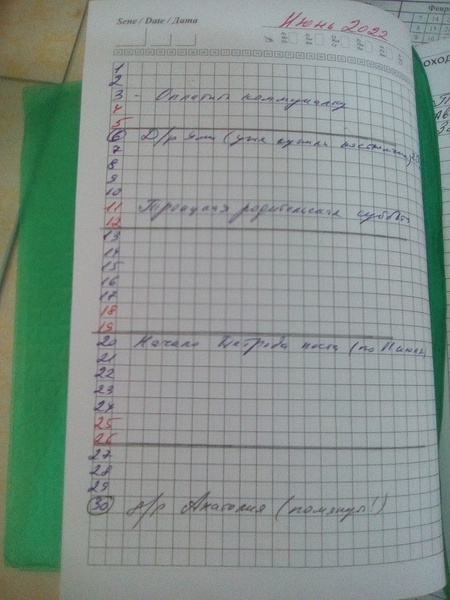 Sene / Date / Дата
Июнь 2022
1
2
3 - Оплатить коммуналку
4
5
6 Д/р Яли (уже
7
8
9
10
11 Троицкая родительская суббота
12
13
14
15
16
17
18
19
20 Начало Петрова поста (по 11 июля)
21
22
23
24
25
26
27
28
29
30 д/р Анатолия (помянуть!)
Февр